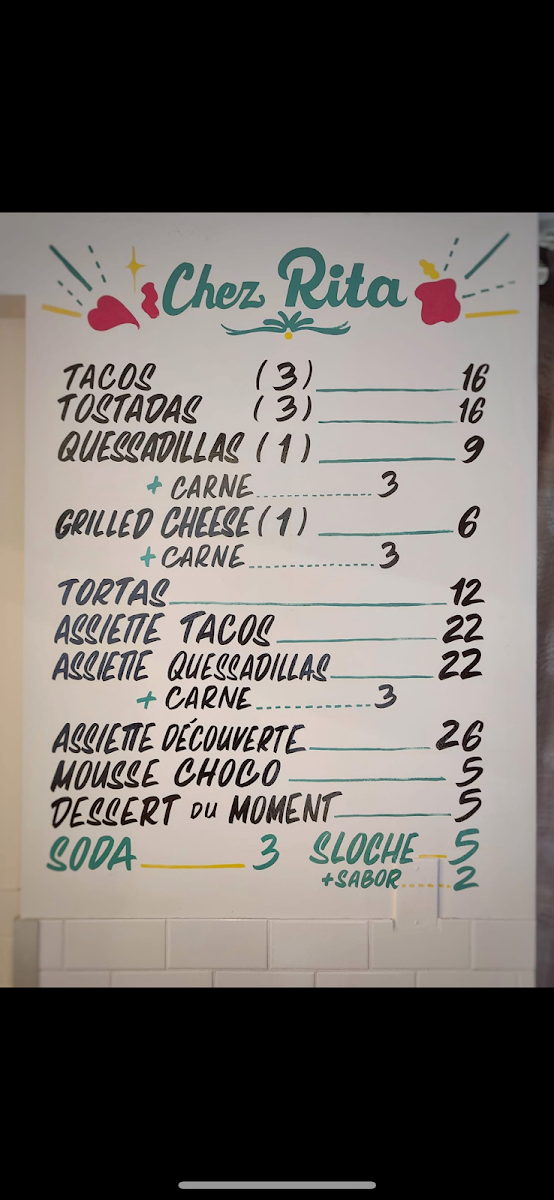 Chez Rita
TACOS (3) 16
TOSTADAS (3) 16
QUESSADILLAS (1) 9
+ CARNE 3
GRILLED CHEESE (1) 6
+ CARNE 3
TORTAS 12
ASSIETTE TACOS 22
ASSIETTE QUESSADILLAS 22
+ CARNE 3
ASSIETTE DÉCOUVERTE 26
MOUSSE CHOCO 5
DESSERT DU MOMENT 5
SODA 3 SLOCHE 5
+SABOR 2